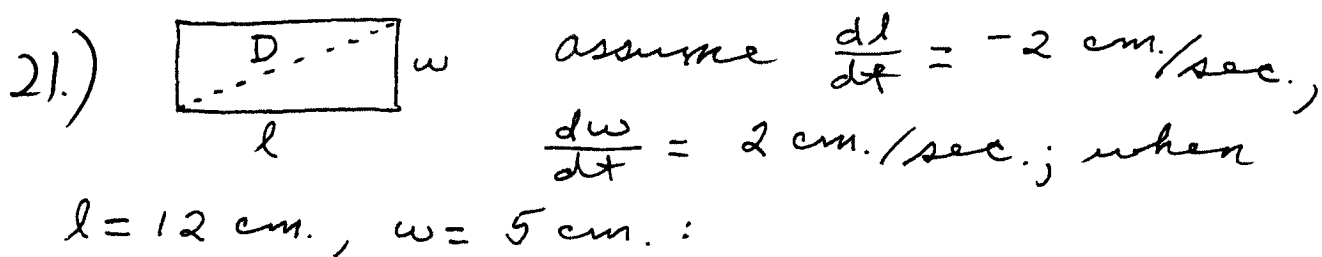 21.) D w l assume dl/dt = -2 cm./sec.,
dw/dt = 2 cm./sec.; when
l = 12 cm., w = 5 cm. :